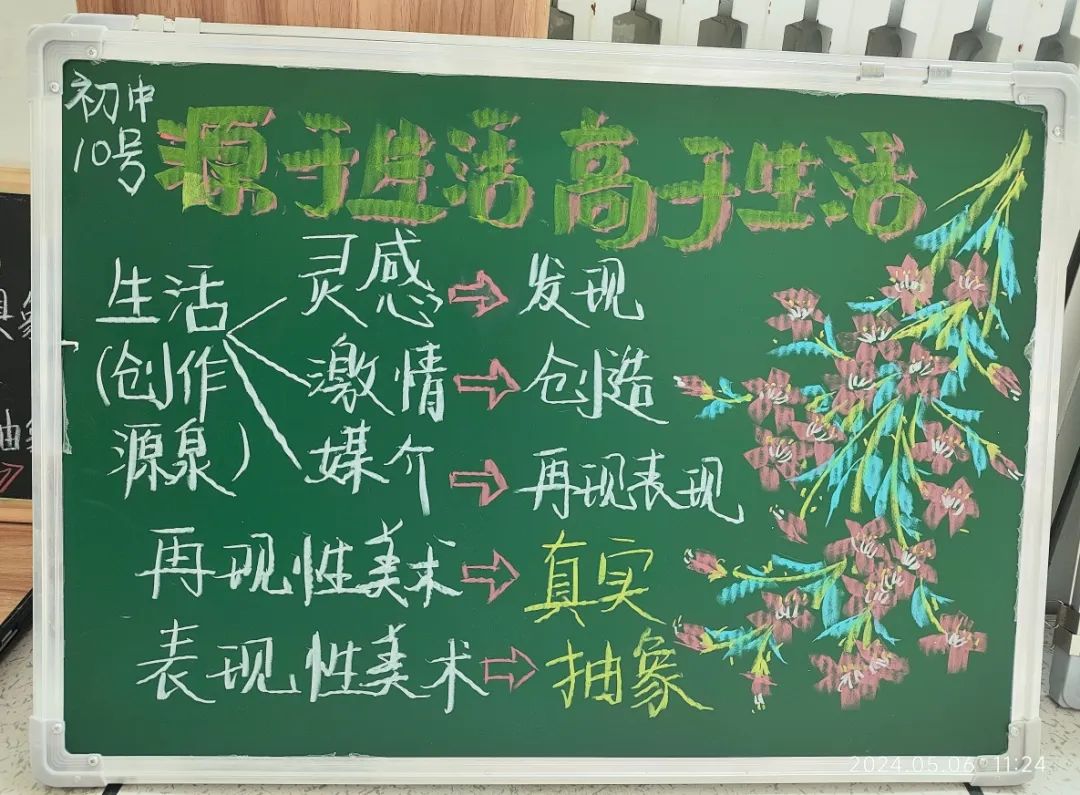 初中
10号
源于生活 高于生活
生活
(创作
源泉)
灵感 发现
激情 创造
媒介 再现表现
再现性美术 真实
表现性美术 抽象
2024.05.06 11:24